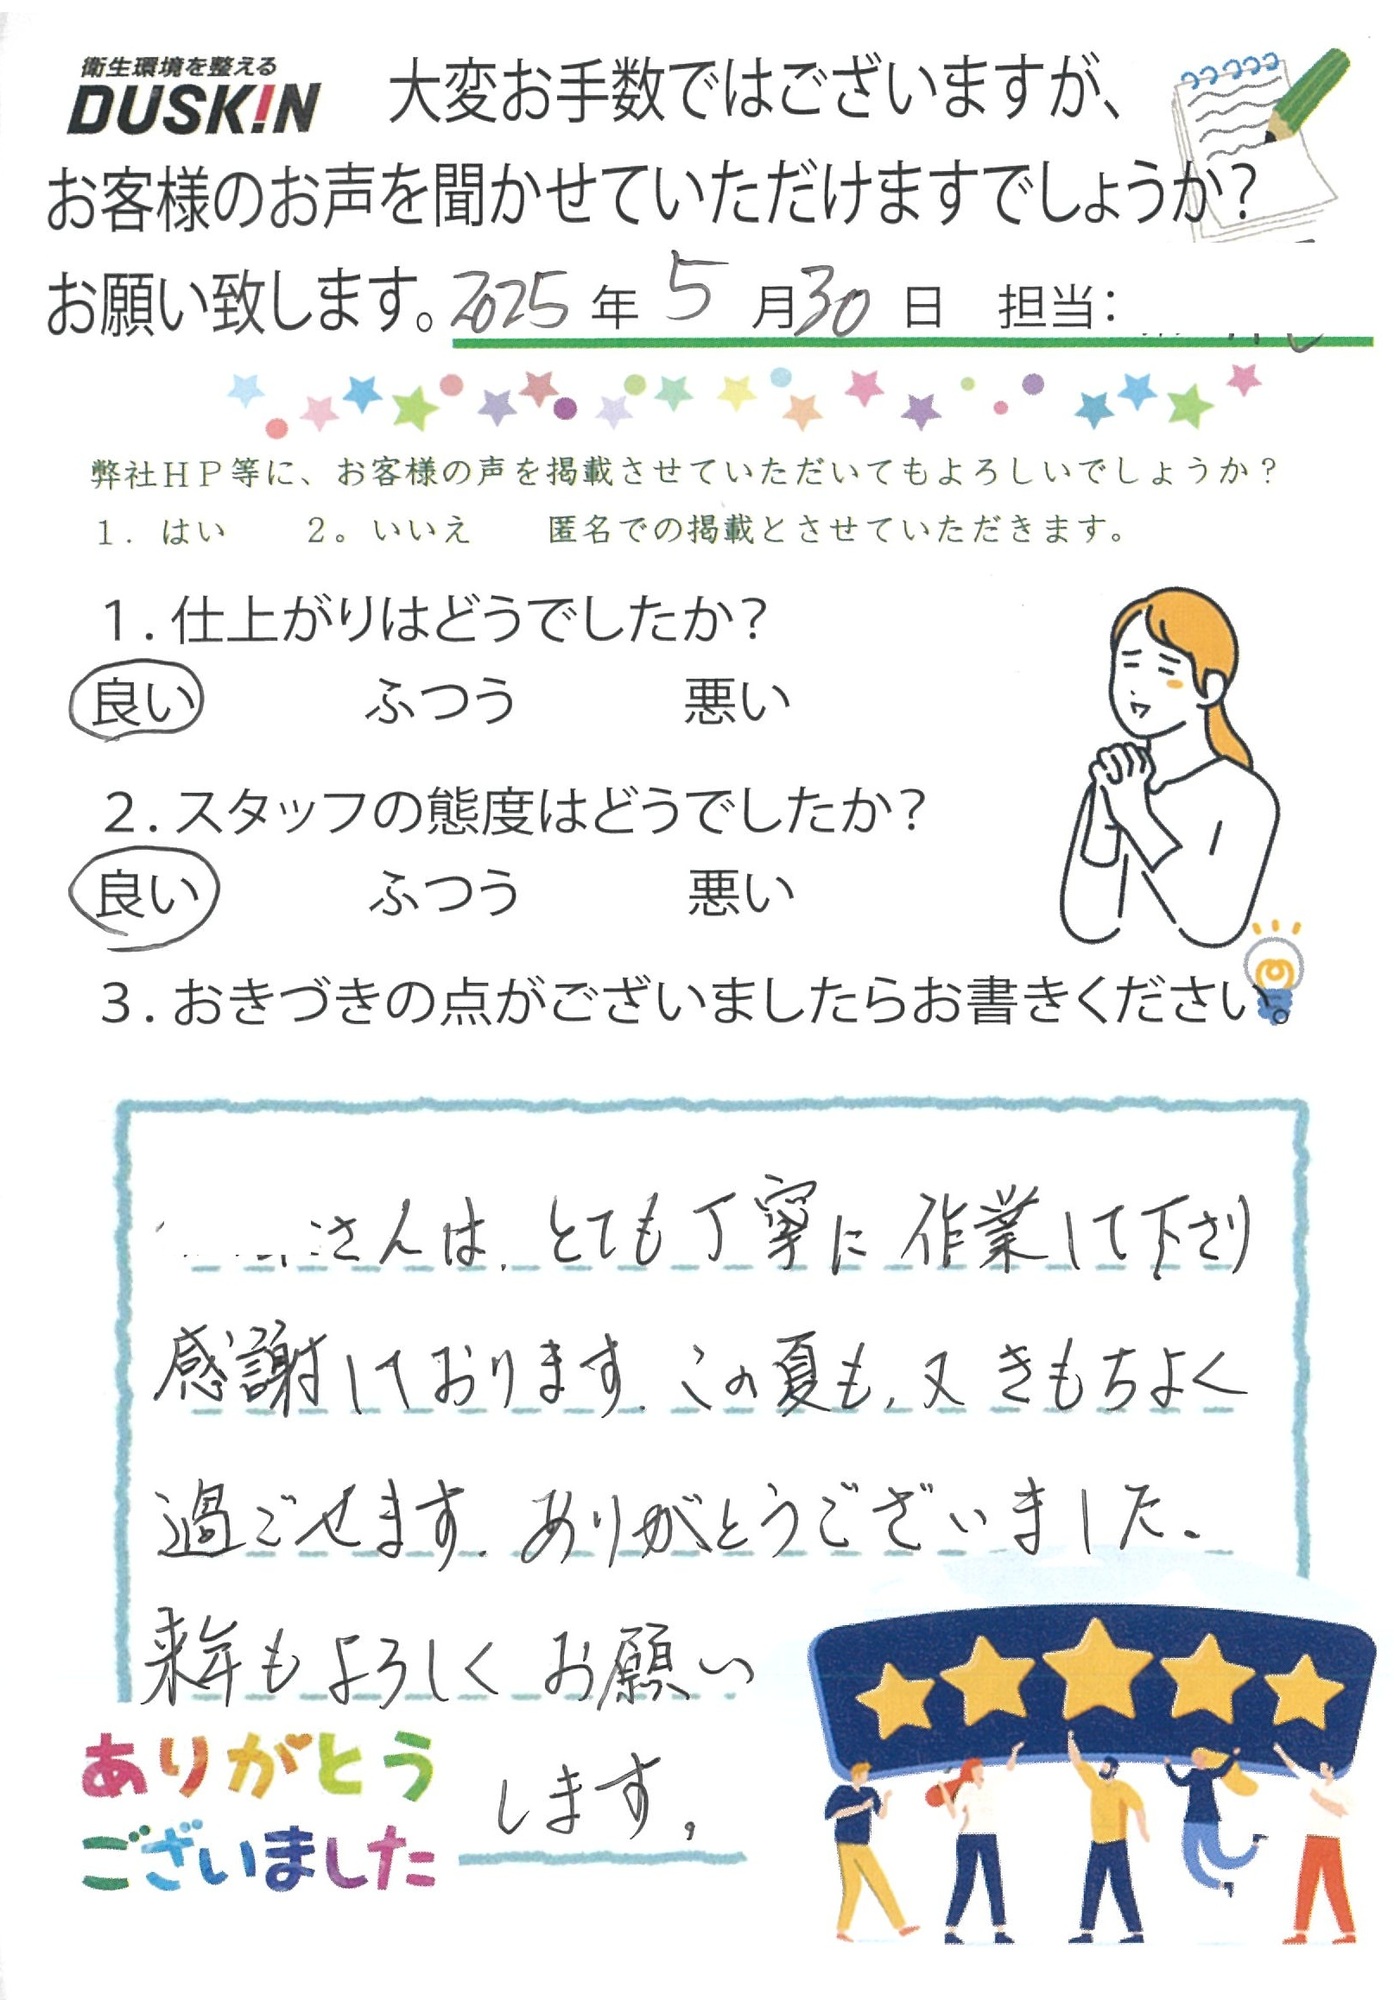 衛生環境を整える
DUSKIN
大変お手数ではございますが、
お客様のお声を聞かせていただけますでしょうか？
お願い致します。2025年 5月30日 担当：
弊社ＨＰ等に、お客様の声を掲載させていただいてもよろしいでしょうか？
１．はい ２。いいえ 匿名での掲載とさせていただきます。
１．仕上がりはどうでしたか？
良い ふつう 悪い
２．スタッフの態度はどうでしたか？
良い ふつう 悪い
３．おきづきの点がございましたらお書きください。
さんは、とても丁寧に作業して下さり
感謝しております。この夏も、又きもちよく
過ごせます。ありがとうございました。
来年もよろしくお願い
します。
ありがとう
ございました